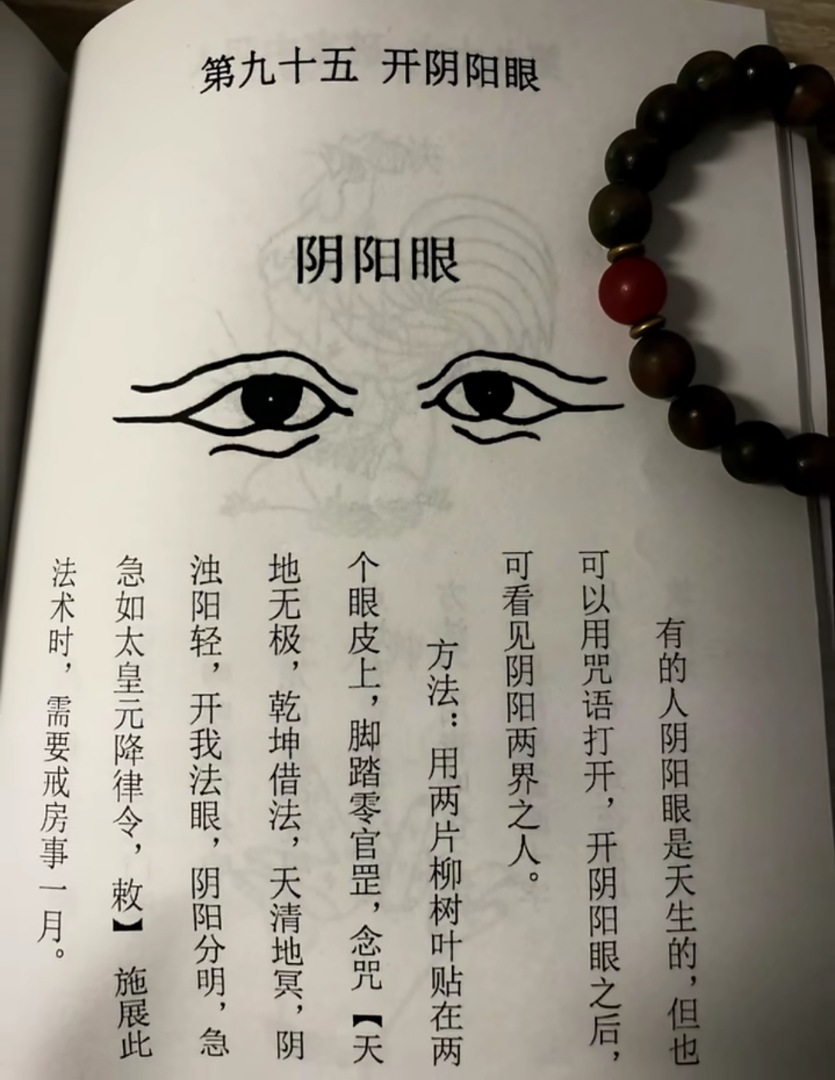 第九十五 开阴阳眼
阴阳眼
有的人阴阳眼是天生的，但也
可以用咒语打开，开阴阳眼之后，
可看见阴阳两界之人。
方法：用两片柳树叶贴在两
个眼皮上，脚踏零官罡，念咒【天
地无极，乾坤借法，天清地冥，阴
浊阳轻，开我法眼，阴阳分明，急
急如太皇元降律令，敕】 施展此
法术时，需要戒房事一月。